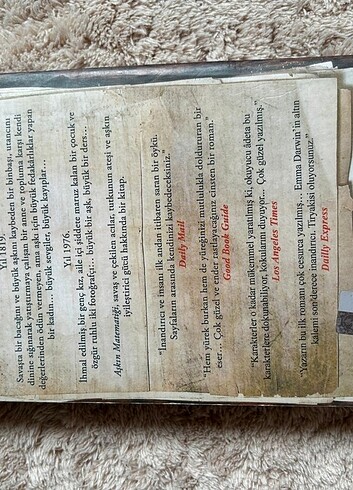 Yıl 1819.
Savaşta bir bacağını ve büyük aşkını kaybeden bir binbaşı, utancını
dinine sığınarak yatıştırmaya çalışan bir anne ve topluma karşı kendi
değerlerinden ödün vermeyen, ama aşkı için büyük fedakârlıklar yapan
bir kadın... büyük sevgiler, büyük kayıplar...
Yıl 1976.
İhmal edilmiş bir genç kız, aile içi şiddete maruz kalan bir çocuk ve
özgür ruhlu iki fotoğrafçı... büyük bir aşk, büyük bir ders...
Aşkın Matematiği, savaş ve çekilen acılar, tutkunun ateşi ve aşkın
iyileştirici gücü hakkında bir kitap.
"İnandırıcı ve insanı ilk andan itibaren saran bir öykü.
Sayfaların arasında kendinizi kaybedeceksiniz."
Daily Mail
"Hem yürek burkan hem de yüreğinizi mutlulukla dolduran bir
eser... Çok güzel ve ender rastlayacağınız türden bir roman."
Good Book Guide
"Karakterler o kadar mükemmel yaratılmış ki, okuyucu âdeta bu
karakterlere dokunabiliyor, kokularını duyuyor... Çok güzel yazılmış."
Los Angeles Times
"Yazarın bu ilk romanı çok cesurca yazılmış... Emma Darwin'in altın
kalemi son derece inandırıcı. Tiryakisi oluyorsunuz."
Daily Express